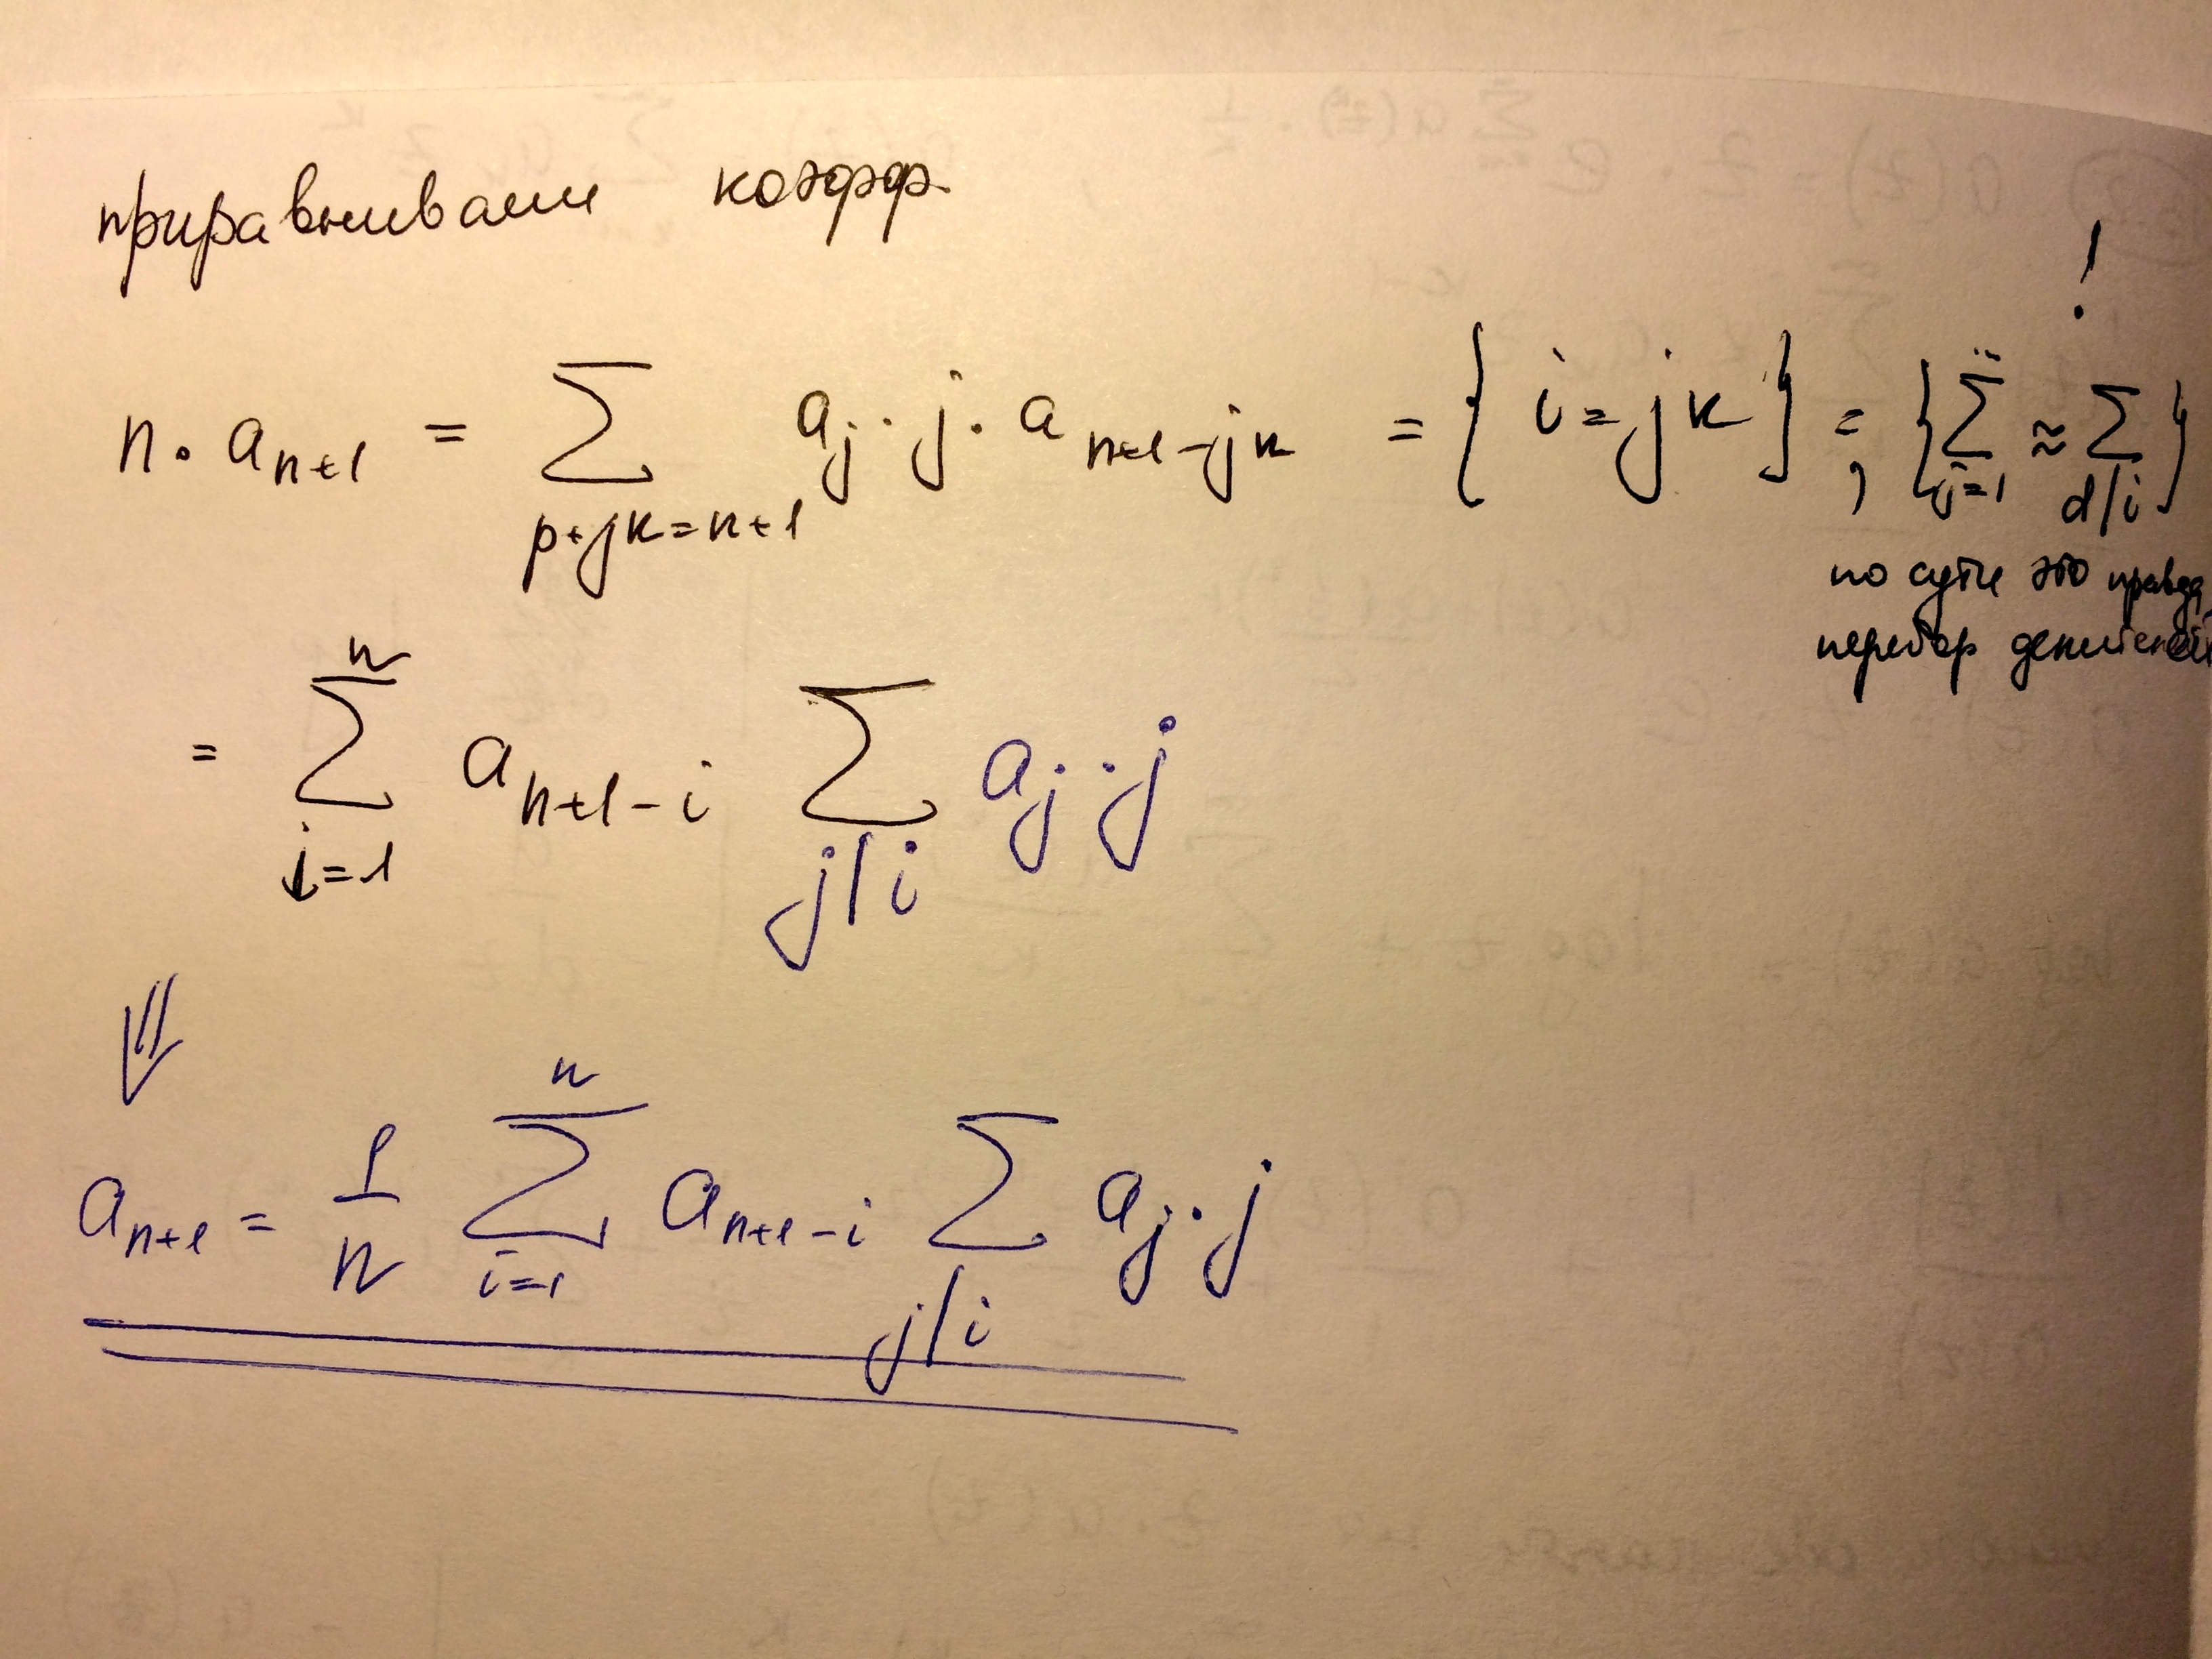 приравниваем коэфф.
!
n · a_{n+1} = Σ_{p+jk=n+1} a_j · j · a_{n+1-jk} = { i = jk } = , { Σ_{j=1}^{..} ≈ Σ_{d|i} }
по сути это правда
перебор делителей
= Σ_{i=1}^{n} a_{n+1-i} Σ_{j|i} a_j · j
⇓
a_{n+1} = 1/n Σ_{i=1}^{n} a_{n+1-i} Σ_{j|i} a_j · j